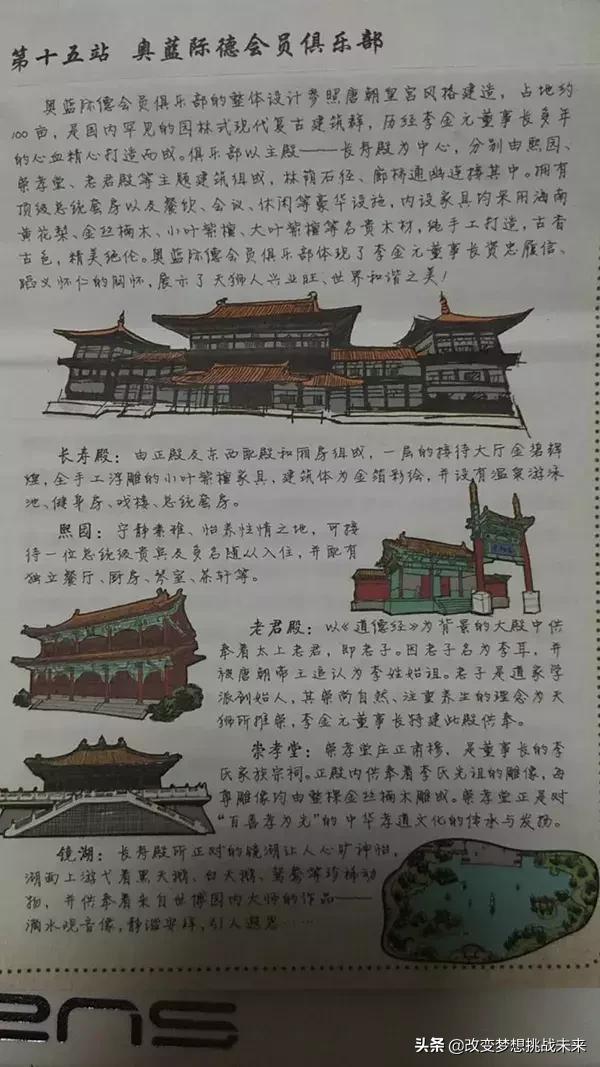 第十五站 奥蓝际德会员俱乐部
奥蓝际德会员俱乐部的整体设计参照唐朝皇宫风格建造，占地约
100亩，是国内罕见的园林式现代复古建筑群，历经李金元董事长多年
的心血精心打造而成。俱乐部以主殿——长寿殿为中心，分别由熙园、
崇孝堂、老君殿等主题建筑组成，林荫石径、廊桥通幽连接其中。拥有
顶级总统套房以及餐饮、会议、休闲等豪华设施，内设家具均采用海南
黄花梨、金丝楠木、小叶紫檀、大叶紫檀等名贵木材，纯手工打造，古香
古色，精美绝伦。奥蓝际德会员俱乐部体现了李金元董事长资忠履信、
蹈义怀仁的胸怀，展示了天狮人兴业旺、世界和谐之美！
长寿殿：由正殿及东西配殿和厢房组成，一层的接待大厅金碧辉
煌，全手工浮雕的小叶紫檀家具，建筑体为金箔彩绘，并设有温泉游泳
池、健身房、戏楼、总统套房。
熙园：宁静素雅、怡养性情之地，可接
待一位总统级贵宾及多名随从入住，并配有
独立餐厅、厨房、琴室、茶轩等。
老君殿：以《道德经》为背景的大殿中供
奉着太上老君，即老子。因老子名为李耳，并
被唐朝帝王追认为李姓始祖。老子是道家学
派创始人，其崇尚自然、注重养生的理念为天
狮所推崇，李金元董事长特建此殿供奉。
崇孝堂：崇孝堂庄正肃穆，是董事长的李
氏家族宗祠。正殿内供奉着李氏先祖的雕像，每
尊雕像均由整棵金丝楠木雕成。崇孝堂正是对
“百善孝为先”的中华孝道文化的传承与发扬。
镜湖：长寿殿所正对的镜湖让人心旷神怡，
湖面上游弋着黑天鹅、白天鹅、鸳鸯等珍稀动
物，并供奉着来自世博园内大师的作品——
滴水观音像，静谧安祥，引人遐思……
ens
头条 @改变梦想挑战未来